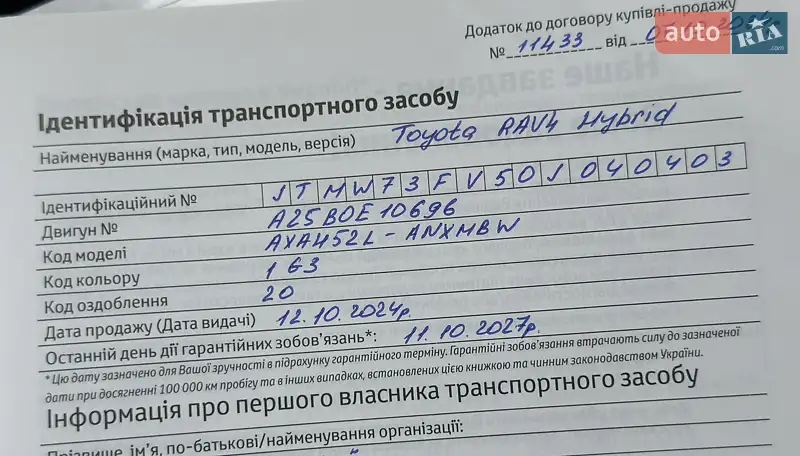 Додаток до договору купівлі-продажу
№ 11433 від
auto RIA.com
Ідентифікація транспортного засобу
Найменування (марка, тип, модель, версія) Toyota RAV4 Hybrid
Ідентифікаційний № JTMW73FV50J040403
Двигун № A25B0E10696
Код моделі AXA452L-ANXMBW
Код кольору 1G3
Код оздоблення 20
Дата продажу (Дата видачі) 12.10.2024р.
Останній день дії гарантійних зобов'язань*: 11.10.2027р.
* Цю дату зазначено для Вашої зручності в підрахунку гарантійного терміну. Гарантійні зобов'язання втрачають силу до зазначеної
дати при досягненні 100 000 км пробігу та в інших випадках, встановлених цією книжкою та чинним законодавством України.
Інформація про першого власника транспортного засобу
Прізвище, ім'я, по-батькові/найменування організації: